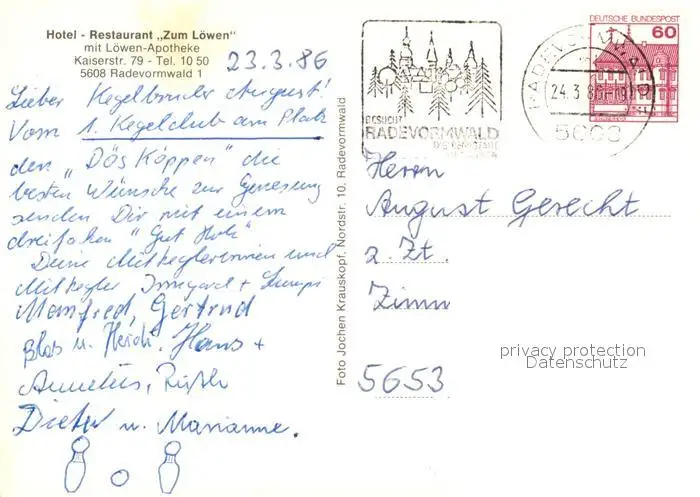 Hotel - Restaurant „Zum Löwen"
mit Löwen-Apotheke
Kaiserstr. 79 - Tel. 10 50
5608 Radevormwald 1
23.3.86
Lieber Kegelbruder August!
Vom 1. Kegelclub am Platz
den „Dös Köppen" die
besten Wünsche zur Genesung
senden Dir mit einem
dreifachen "Gut Holz"
Deine Mitkeglerinnen und
Mitkegler Irmgard +
Manfred, Gertrud
u. Heidi. Hans +
Dieter u. Marianne.
Foto Jochen Krauskopf, Nordstr. 10, Radevormwald
BESUCHT
RADEVORMWALD
DEUTSCHE BUNDESPOST
60
RADEVORMWALD
24.3.86-19
5608
Herrn
August Gerecht
z. Zt.
Zimm
5653
privacy protection
Datenschutz